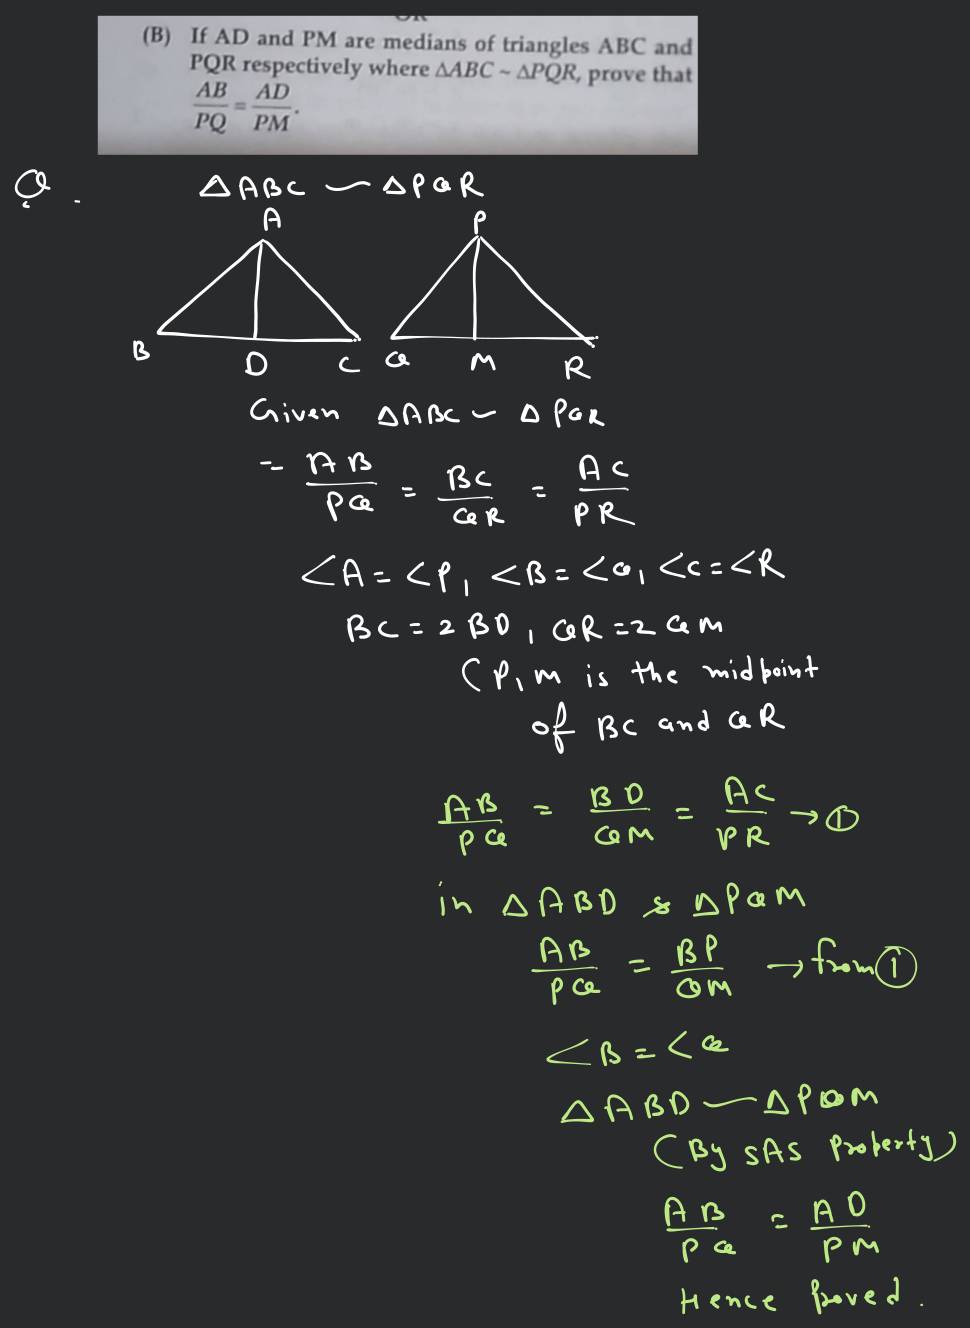 (B) If AD and PM are medians of triangles ABC and
PQR respectively where ΔABC ~ ΔPQR, prove that
AB/PQ = AD/PM.
Q. Δ ABC ~ Δ PQR
A P
B D C Q M R
Given ΔABC ~ Δ PQR
= AB/PQ = BC/QR = AC/PR
<A = <P, <B = <Q, <C = <R
BC = 2 BD, QR = 2 QM
(P, M is the midpoint
of BC and QR
AB/PQ = BD/QM = AC/PR → ①
in Δ ABD & Δ PQM
AB/PQ = BP/QM → from ①
<B = <Q
Δ ABD ~ Δ PQM
(By SAS Property)
AB/PQ = AD/PM
Hence Proved.